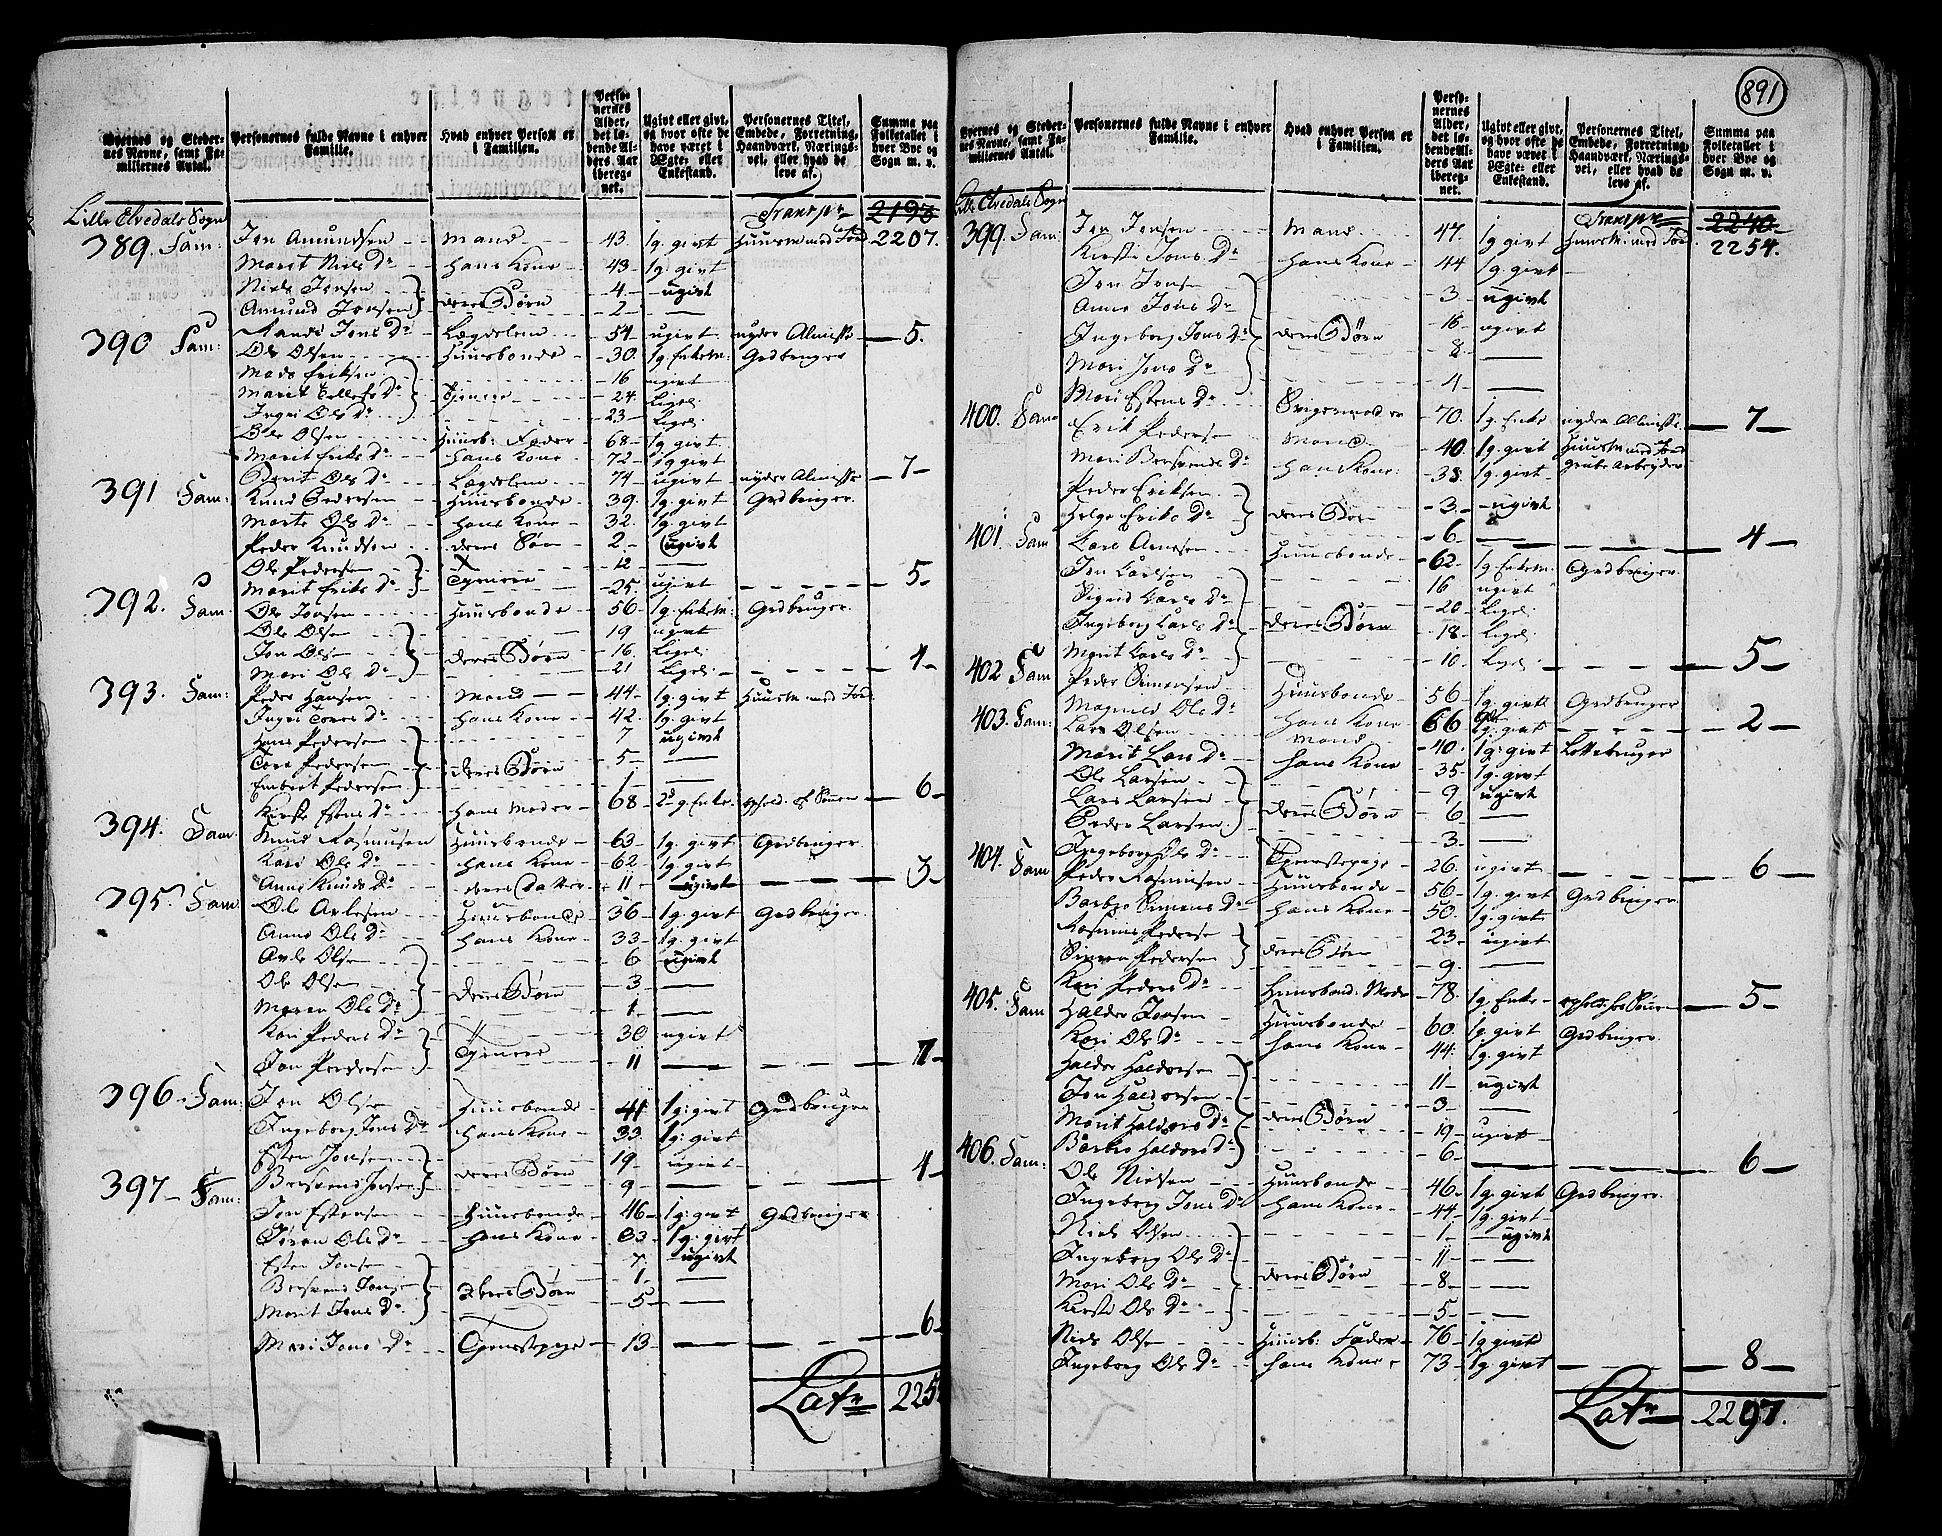 891
Byernes og Steder-
nes Navne, samt Fa-
miliernes Antal.
Personernes fulde Navne i enhver
Familie.
Hvad enhver Person er
i Familien.
Perso-
nernes
Alder,
det lø-
bende Al-
ders Aar
ibereg-
net.
Ugivt eller givt,
og hvor ofte de
have været i
Ægte- eller
Enkestand.
Personernes Titel,
Embede, Forretning,
Haandværk, Nærings-
vei, eller hvad de
leve af.
Summa paa
Folketallet i
hver Bye og
Sogn m. v.
Lille Elvedals Sogn Transp. 2193
389. Fam: Jon Amundsen Mand 43. 1 g. givt Huusm med Jord 2207.
Marit Niels Dr hans Kone 43 1 g. givt
Niels Jonsen 4 ugivt
Amund Jonsen deres Børn 2
Randi Jons Dr Lægdelem 54 ugivt nyder Almisse 5.
390 Fam: Ole Olsen Huusbonde 30. 1 g. Enkem: Grdbruger
Mads Eriksen 16 ugivt
Marit Dr Tjenere 24 Ligel:
Ingri Ols Dr 23 Ligel:
Ole Olsen Huusb: Fader 68 1 g givt
Marit Eriks Dr hans Kone 72 1 g givt
Berit Ols Dr Lægdelem 74 ugivt nyder Almisse 7
391 Fam: Knud Pedersen Huusbonde 39. 1 g. givt Grdbruger
Marte Ols Dr hans Kone 32. 1 g. givt
Peder Knudsen deres Søn 2. ugivt
Ole Pedersen 12
Marit Eriks Dr Tjenere 25. ugivt 5.
392. Fam. Ole Jonsen Huusbonde 56 1 g. Enkem: Grdbruger
Ole Olsen 19 ugivt
Jon Olsen deres Børn 16. Ligel:
Mari Ols Dr 21 Ligel: 4
393. Fam: Peder Hansen Mand 44 1 g. givt Huusm med Jord
Ingri Tores Dr hans Kone 42. 1 g. givt
Hans Pedersen 7 ugivt
Tore Pedersen deres Børn 5
Embret Pedersen 1
Kirsti Estens Dr hans Moder 68 2d g. Enke. ophold. af Sønnen 6
394. Fam Knud Rasmusen Huusbonde 63 1 g. givt Grdbruger
Kari Ols Dr hans Kone 62. 1 g. givt
Anne Knuds Dr deres Datter 11 ugivt 3
395. Fam Ole Arlesen Huusbonde 36 1 g. givt Grdbruger
Anne Ols Dr hans Kone 33 1 g. givt
Olsen 6 ugivt
Ole Olsen deres Børn 3
Maren Ols Dr 1
Kari Peders Dr 30 ugivt
Jon Pedersen Tjenere 11 7
396 Fam: Jon Olsen Huusbonde 41 1 g: givt Grdbruger
Ingeborg Jons Dr hans Kone 33 1 g: givt
Esten Jonsen deres Børn 19 ugivt
Bersvend Jonsen 9 4
397 Fam: Jon Estensen Huusbonde 46 1 g: givt Grdbruger
Ols Dr hans Kone 33 1 g: givt
Esten Jonsen 7. ugivt
Bersvend Jonsen deres Børn 1
Marit Jons Dr 5
Mari Jons Dr Tjenestepige 13 6
Latr 225
Byernes og Steder-
nes Navne, samt Fa-
miliernes Antal.
Personernes fulde Navne i enhver
Familie.
Hvad enhver Person er
i Familien.
Perso-
nernes
Alder,
det lø-
bende Al-
ders Aar
ibereg-
net.
Ugivt eller givt,
og hvor ofte de
have været i
Ægte- eller
Enkestand.
Personernes Titel,
Embede, Forretning,
Haandværk, Nærings-
vei, eller hvad de
leve af.
Summa paa
Folketallet i
hver Bye og
Sogn m. v.
Lille Elvedals Sogn Transpr 2240
399. Fam: Jon Jonsen Mand 47. 1 g givt Huusm. med Jord 2254.
Kirsti Jons Dr hans Kone 44 1 g. givt
Jon Jonsen 3 ugivt
Anne Jons Dr 16 ugivt
Ingeborg Jons Dr deres Børn 8
Mari Jons Dr 4
Mari Estens Dr Svigermoder 70. 1 g. Enke nyder Almisse 7
400. Fam Erik Pedersen Mand 40 1 g. givt Huusm med Jord
Mari Bersvends Dr hans Kone 38. 1 g. givt Grube Arbeyder
Peder Eriksen 3 ugivt
Helge Eriks Dr deres Børn 6 4
401. Fam Lars Arnesen Huusbonde 62. 1 g Enkem. Grdbruger
Jon Larsen 16 ugivt
Sigrid Lars Dr 20 Ligel:
Ingeborg Lars Dr deres Børn 18 Ligel:
Marit Lars Dr 10. Ligel: 5
402 Fam Peder Simensen Huusbonde 56 1 g. givt Grdbruger
Magnild Ols Dr hans Kone 66 1 g. givt 2
403. Fam: Lars Olsen Mand 40. 1 g. givt Lottebruger
Marit Lars Dr hans Kone 35 1 g. givt
Ole Larsen 9 ugivt
Lars Larsen deres Børn 6
Peder Larsen 3
Ingeborg Ols Dr Tjenestepige 26. ugivt 6
404. Fam Peder Rasmusen Huusbonde 56 1 g. givt Grdbruger
Barbro Simens Dr hans Kone 50. 1 g. givt
Rasmus Pedersen 23 ugivt
Simen Pedersen deres Børn 9.
Kari Peders Dr Huusbond: Moder 78. 1 g. Enke ophold. hos Sønnen 5
405. Fam Haldor Jonsen Huusbonde 60. 1 g. givt Grdbruger
Kari Ols Dr hans Kone 44. 1 g. givt
Haldor Haldorsen 11 ugivt
Jon Haldorsen 3
Marit Haldors Dr deres Børn 19 ugivt
Barbro Haldors Dr 6 6
406. Fam: Ole Nielsen Huusbonde 46. 1 g. givt Grdbruger
Ingeborg Jons Dr hans Kone 44. 1 g. givt
Niels Olsen 1 ugivt
Ingeborg Ols Dr 11
Mari Ols Dr deres Børn 8
Kirsti Ols Dr 5
Niels Olsen Huusb: Fader 76 1 g givt
Ingeborg Ols Dr hans Kone 73 1 g givt 8
Latr 2297.